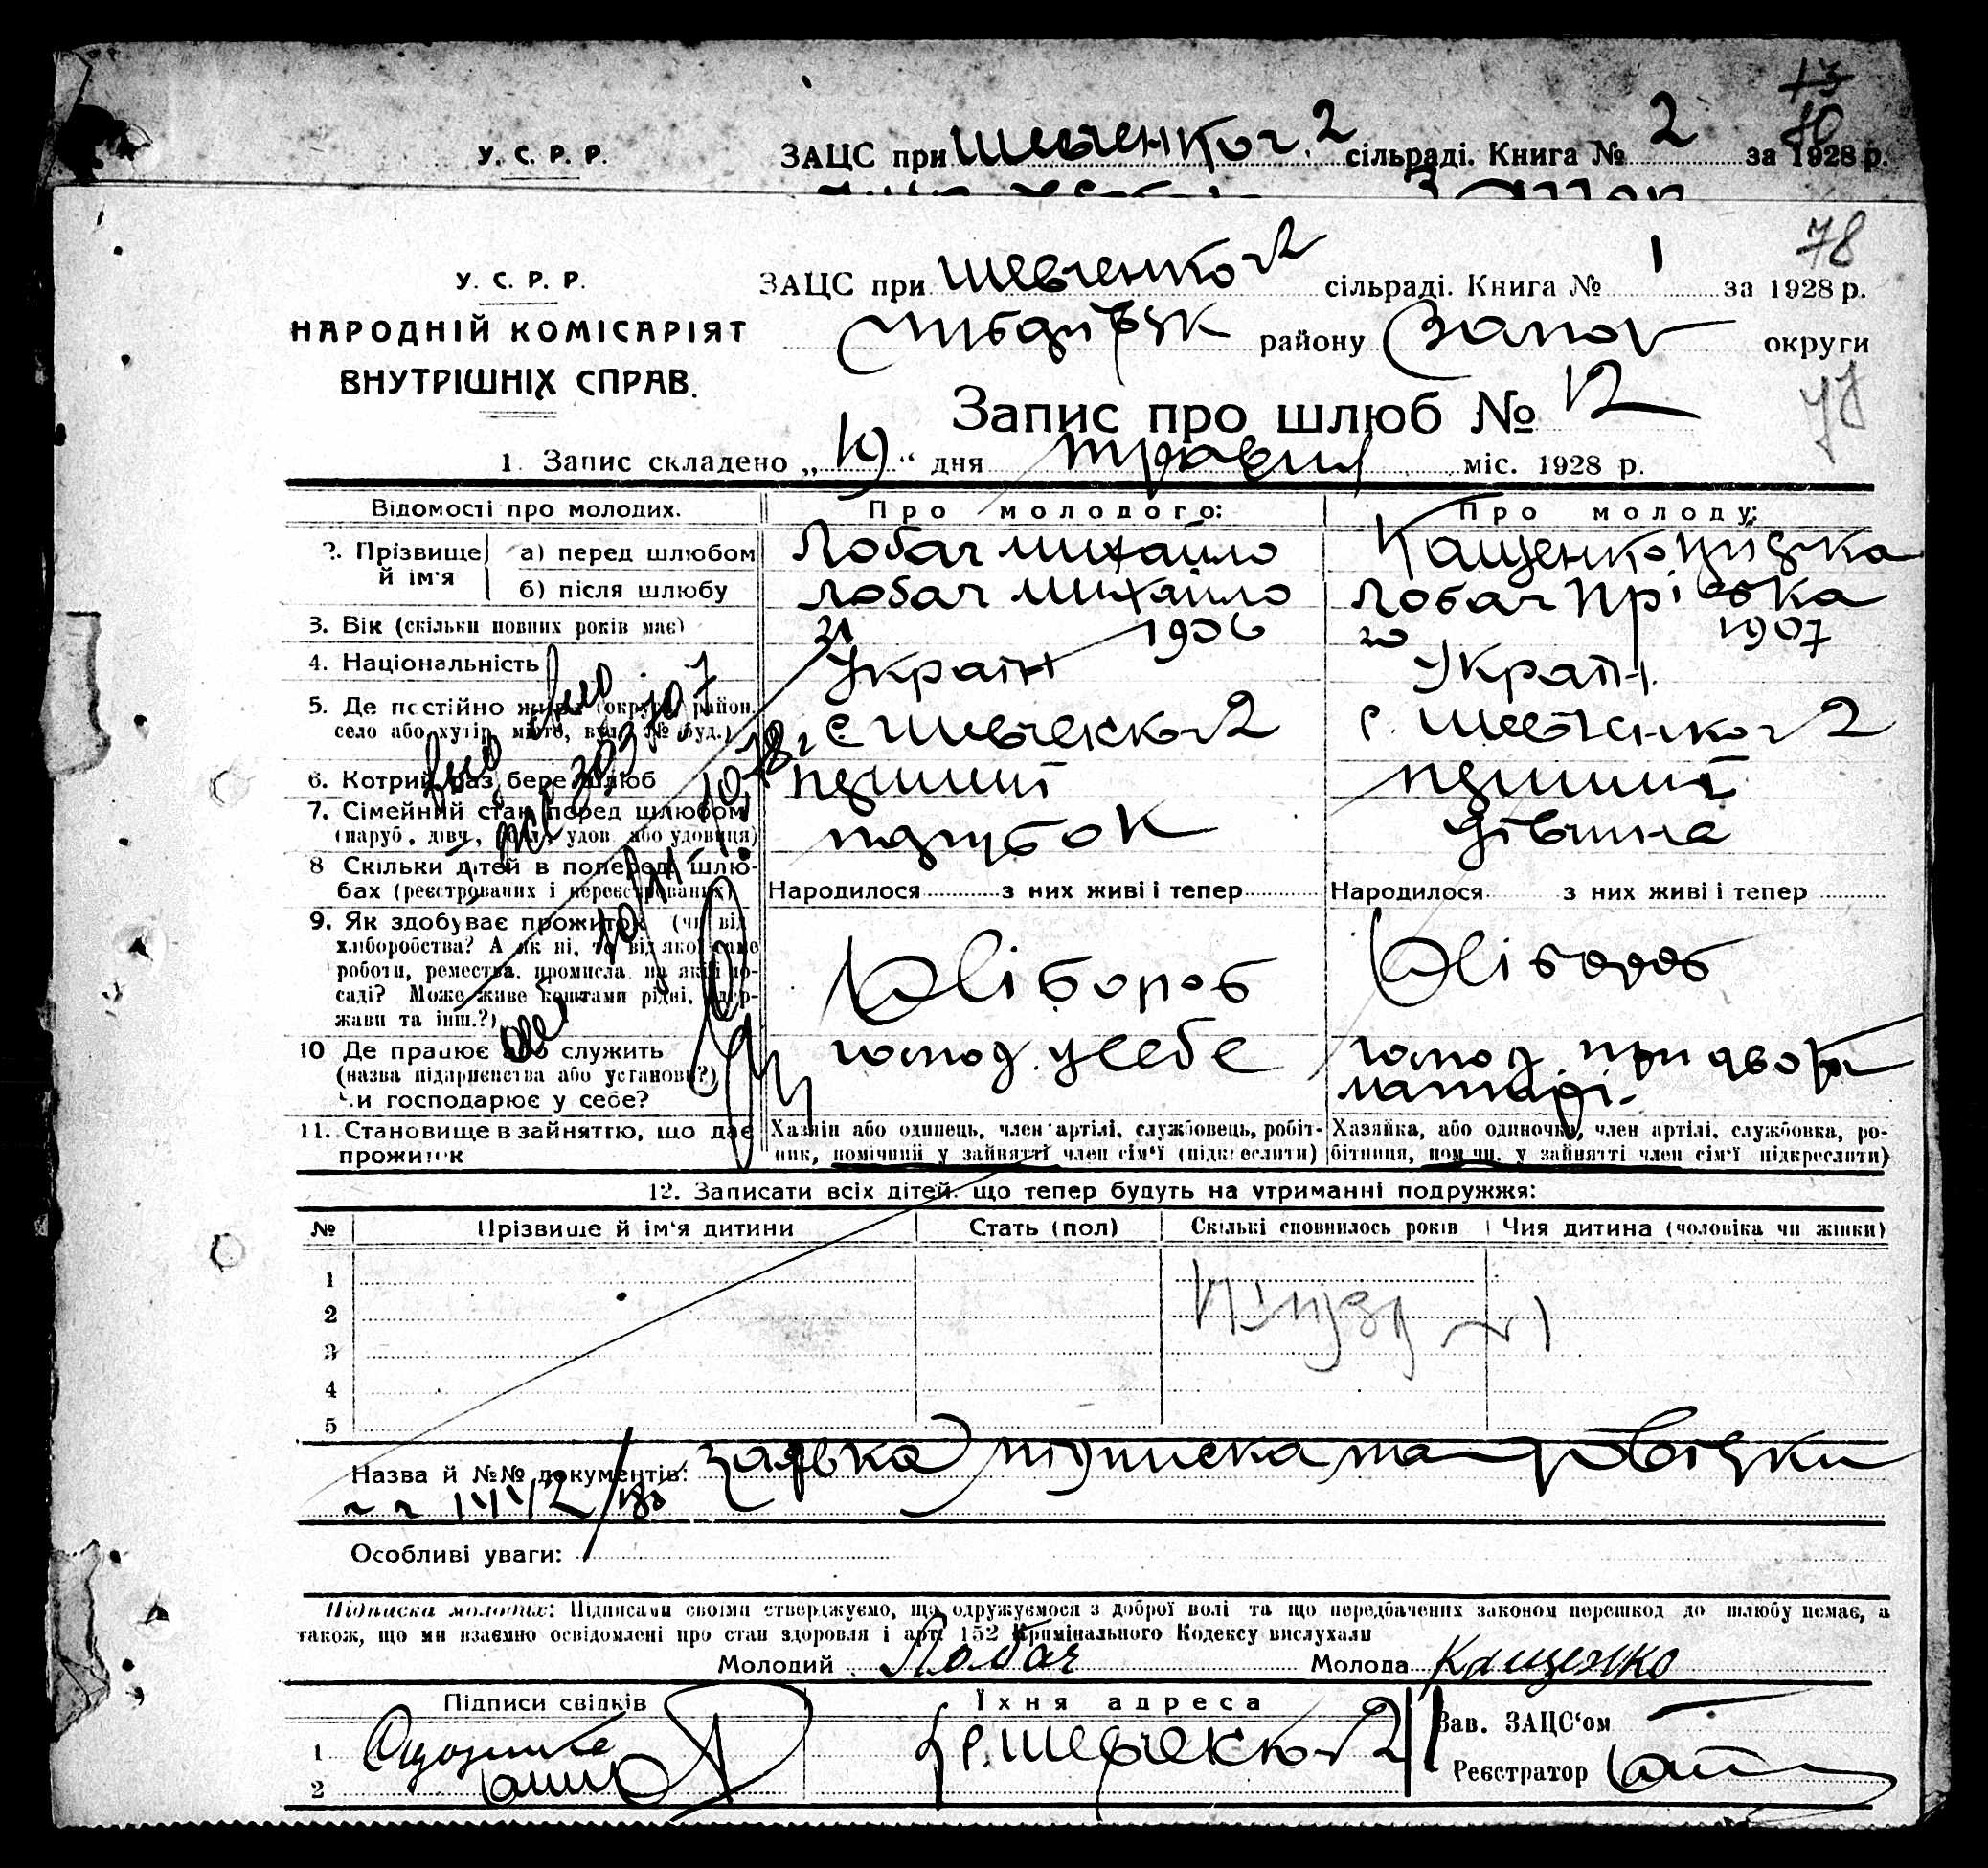 У. С. Р. Р.
ЗАЦС при Шевченков. 2 сільраді. Книга № 2 за 1928 р.
78
У. С. Р. Р.
ЗАЦС при Шевченков 2 сільраді. Книга № 1 за 1928 р.
НАРОДНІЙ КОМІСАРІЯТ
ВНУТРІШНІХ СПРАВ.
району Запор округи
Запис про шлюб № 12
1. Запис складено „19“ дня травня міс. 1928 р.
Відомості про молодих.
Про молодого:
Про молоду:
2. Прізвище й ім'я
а) перед шлюбом
Лобач Михайло
Кащенко
б) після шлюбу
Лобач Михайло
Лобач
3. Вік (скільки повних років має)
21 1906
20 1907
4. Національність
Україн
Україн.
5. Де постійно живе (округа, район,
село або хутір, місто, вул., № буд.)
с Шевченков 2
с. Шевченков 2
6. Котрий раз бере шлюб
перший
перший
7. Сімейний стан перед шлюбом
(паруб., дівч., розл., удов. або удовиця)
парубок
дівчина
8 Скільки дітей в попередн. шлю-
бах (реєстрованих і нереєстрованих)
Народилося з них живі і тепер
Народилося з них живі і тепер
9. Як здобуває прожиток (чи від
хліборобства? А як ні, то від якої саме
роботи, ремества, промисла, на якій по-
саді? Може живе коштами рідні, дер-
жави та інш.?)
Хлібороб
Хлібороб
10 Де працює або служить
(назва підприємства або установи?)
Чи господарює у себе?
господ. у себе
господ. при дворі
матері.
11. Становище в зайняттю, що дає
прожиток
Хазяїн або одинець, член артілі, службовець, робіт-
ник, помічний у зайнятті член сім'ї (підкреслити)
Хазяйка, або одиночка, член артілі, службовка, ро-
бітниця, помічн. у зайнятті член сім'ї підкреслити)
12. Записати всіх дітей, що тепер будуть на утриманні подружжя:
№ Прізвище й ім'я дитини Стать (пол) Скількі сповнилось років Чия дитина (чоловіка чи жінки)
1
2
3
4
5
Назва й №№ документів: заявка, підписка та довідки
Особливі уваги:
Підписка молодих: Підписами своїми стверджуємо, що одружуємося з доброї волі та що передбачених законом перешкод до шлюбу немає, а
також, що ми взаємно освідомлені про стан здоровля і арт. 152 Кримінального Кодексу вислухали
Молодий Лобач Молода Кащенко
Підписи свідків
Їхня адреса
Зав. ЗАЦС'ом
1
с. Шевченков 2
2
Реєстратор